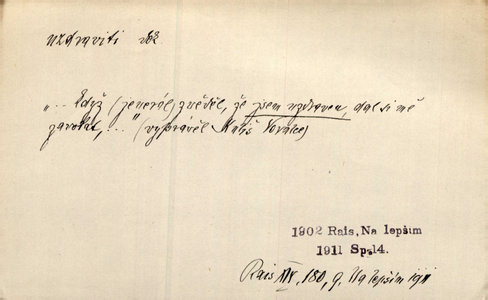 uzdraviti dok.
„... Když (jenerál) zvěděl, že jsem uzdraven, dal si mě
zavolat, ..." (vyprávěl Matiš
1902 Rais, Na lepším
1911 Sp. 14.
Rais XIV, 180, 9. Na lepším 1911